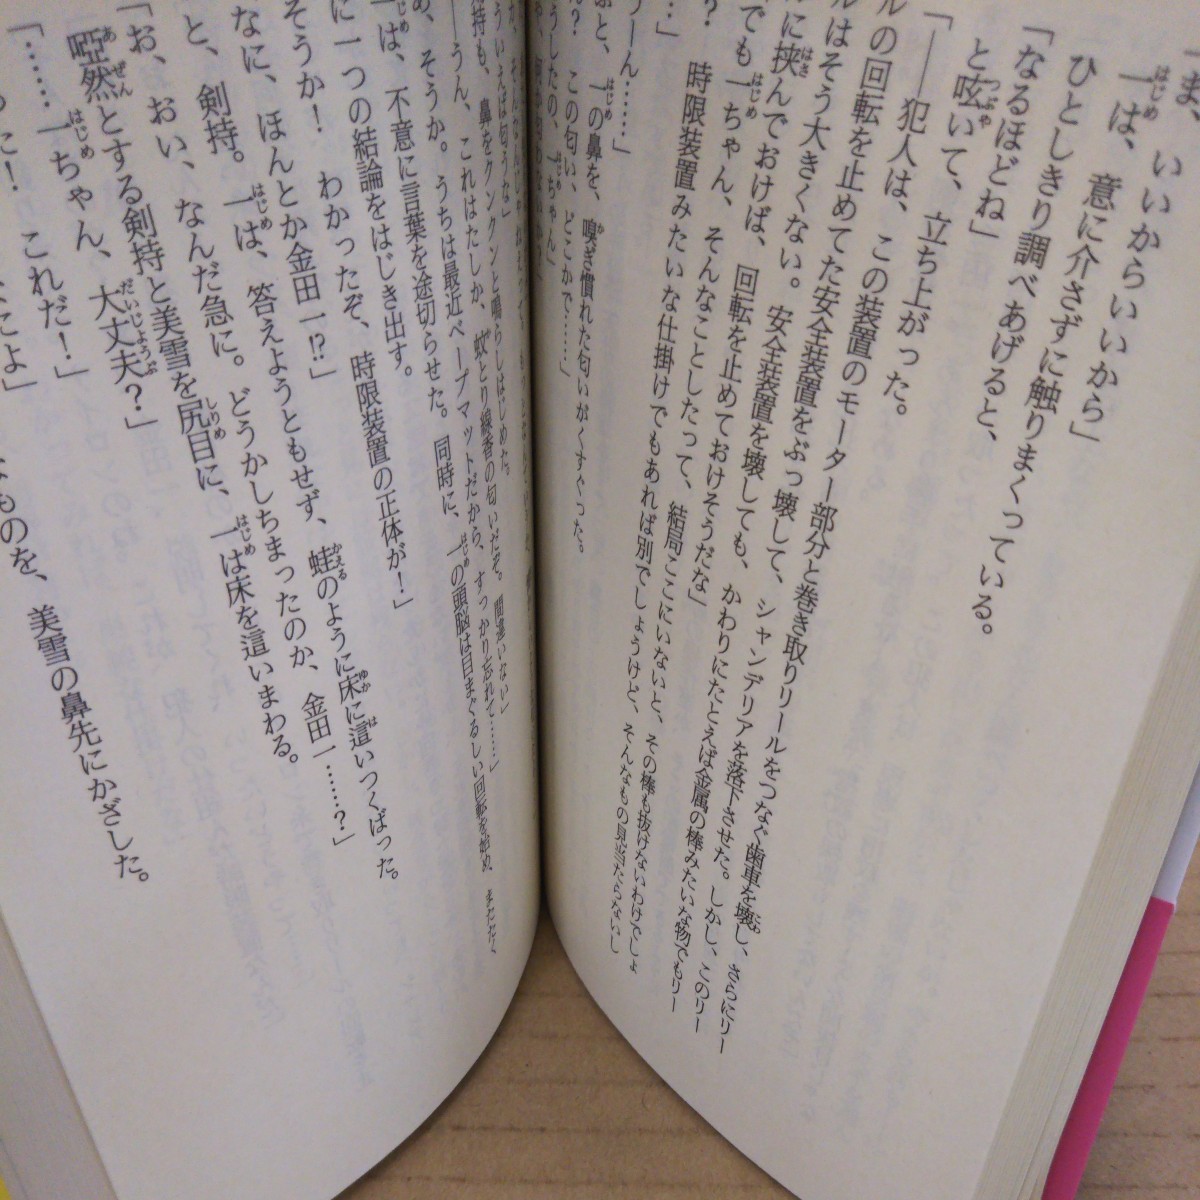 「ま、いいからいいから」
一は、意に介さずに触りまくっている。
ひとしきり調べあげると、
「なるほどね」
と呟いて、立ち上がった。
「――犯人は、この装置のモーター部分と巻き取りリールをつなぐ歯車を壊し、さらにリー
ルの回転を止めてた安全装置をぶっ壊して、シャンデリアを落下させた。しかし、このリー
ルはそう大きくない。安全装置を壊しても、かわりにたとえば金属の棒みたいな物でもリー
ルに挟んでおけば、回転を止めておけそうだな」
でも一ちゃん、そんなことしたって、結局ここにいないと、その棒も抜けないわけでしょ
? 時限装置みたいな仕掛けでもあれば別でしょうけど、そんなもの見当たらないし
…」
うーん……」
ふと、一の鼻を、嗅ぎ慣れた匂いがくすぐった。
ん? この匂い、どこかで……」
うしたの、一ちゃん」
ういえば匂うな」
持も、鼻をクンクンと鳴らしはじめた。
――うん、これはたしか、蚊とり線香の匂いだぞ。間違いない」
あ、そうか。うちは最近ベープマットだから、すっかり忘れて……」
一は、不意に言葉を途切らせた。同時に、一の頭脳は目まぐるしい回転を始め、またたく
に一つの結論をはじき出す。
そうか! わかったぞ、時限装置の正体が!」
なに、ほんとか金田一!?」
と、剣持。一は、答えようともせず、蛙のように床に這いつくばった。
「お、おい、なんだ急に。どうかしちまったのか、金田一……?」
啞然とする剣持と美雪を尻目に、一は床を這いまわる。
「……一ちゃん、大丈夫?」
に! これだ!」
なものを、美雪の鼻先にかざした。